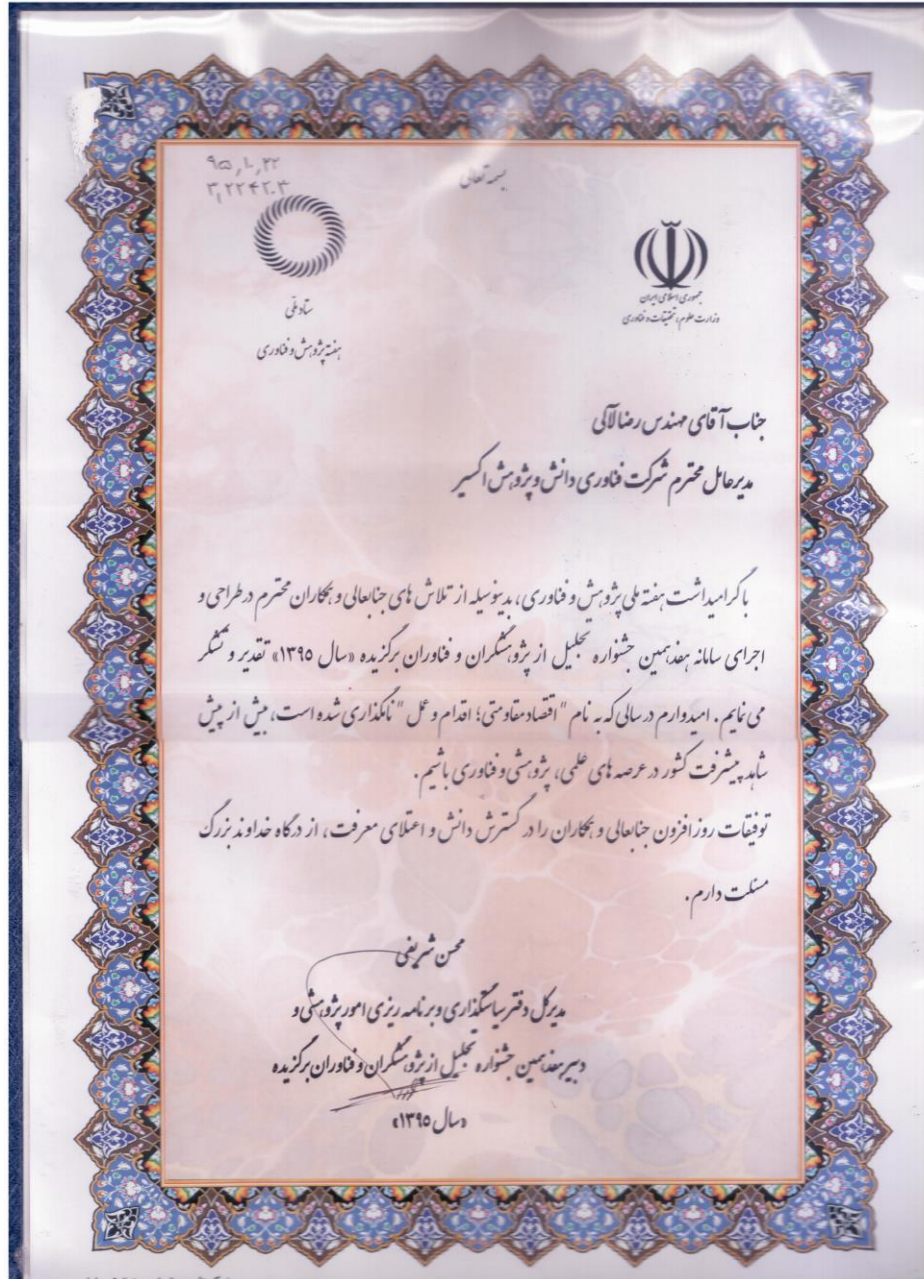 بسمه تعالی
۹۵,۱۰,۲۲
۳,۲۲۴۲۰۳
جمهوری اسلامی ایران
وزارت علوم، تحقیقات و فناوری
ستاد ملی
هفته پژوهش و فناوری
جناب آقای مهندس رضا لاکی
مدیرعامل محترم شرکت فناوری دانش و پژوهش اکسیر
با گرامیداشت هفته ملی پژوهش و فناوری، بدینوسیله از تلاش های جنابعالی و همکاران محترم در طراحی و
اجرای سامانه هفدهمین جشنواره تجلیل از پژوهشگران و فناوران برگزیده «سال ۱۳۹۵» تقدیر و تشکر
می نمایم. امیدوارم در سالی که به نام "اقتصاد مقاومتی؛ اقدام و عمل" نامگذاری شده است، بیش از پیش
شاهد پیشرفت کشور در عرصه های علمی، پژوهشی و فناوری باشیم.
توفیقات روزافزون جنابعالی و همکاران را در گسترش دانش و اعتلای معرفت، از درگاه خداوند بزرگ
مسئلت دارم.
محسن شریفی
مدیرکل دفتر سیاستگذاری و برنامه ریزی امور پژوهشی و
دبیر هفدهمین جشنواره تجلیل از پژوهشگران و فناوران برگزیده
«سال ۱۳۹۵»